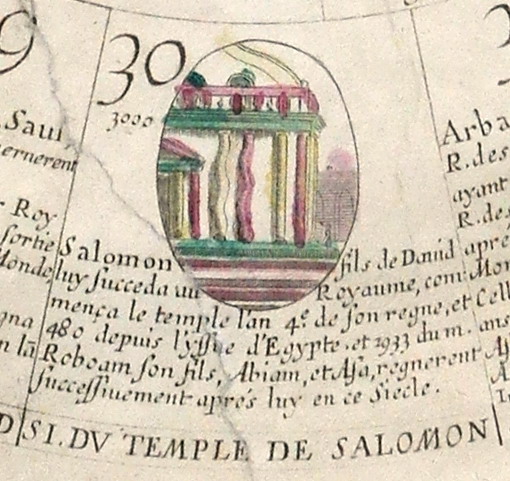 9
30
3000
Saul,
ernerent
Roy
sortie
Monde
Salomon fils de Dauid
luy succeda au Royaume, com
mença le temple l'an 4e. de son regne, et
480 depuis l'yssue d'Egypte. et 2933 du m.
Roboam son fils, Abiam, et Asa, regnerent
successiuement aprés luy en ce Siecle.
SI. DV TEMPLE DE SALOMON
Arba
R. des
ayant
R. des
aprés
Mon
Cell
ans